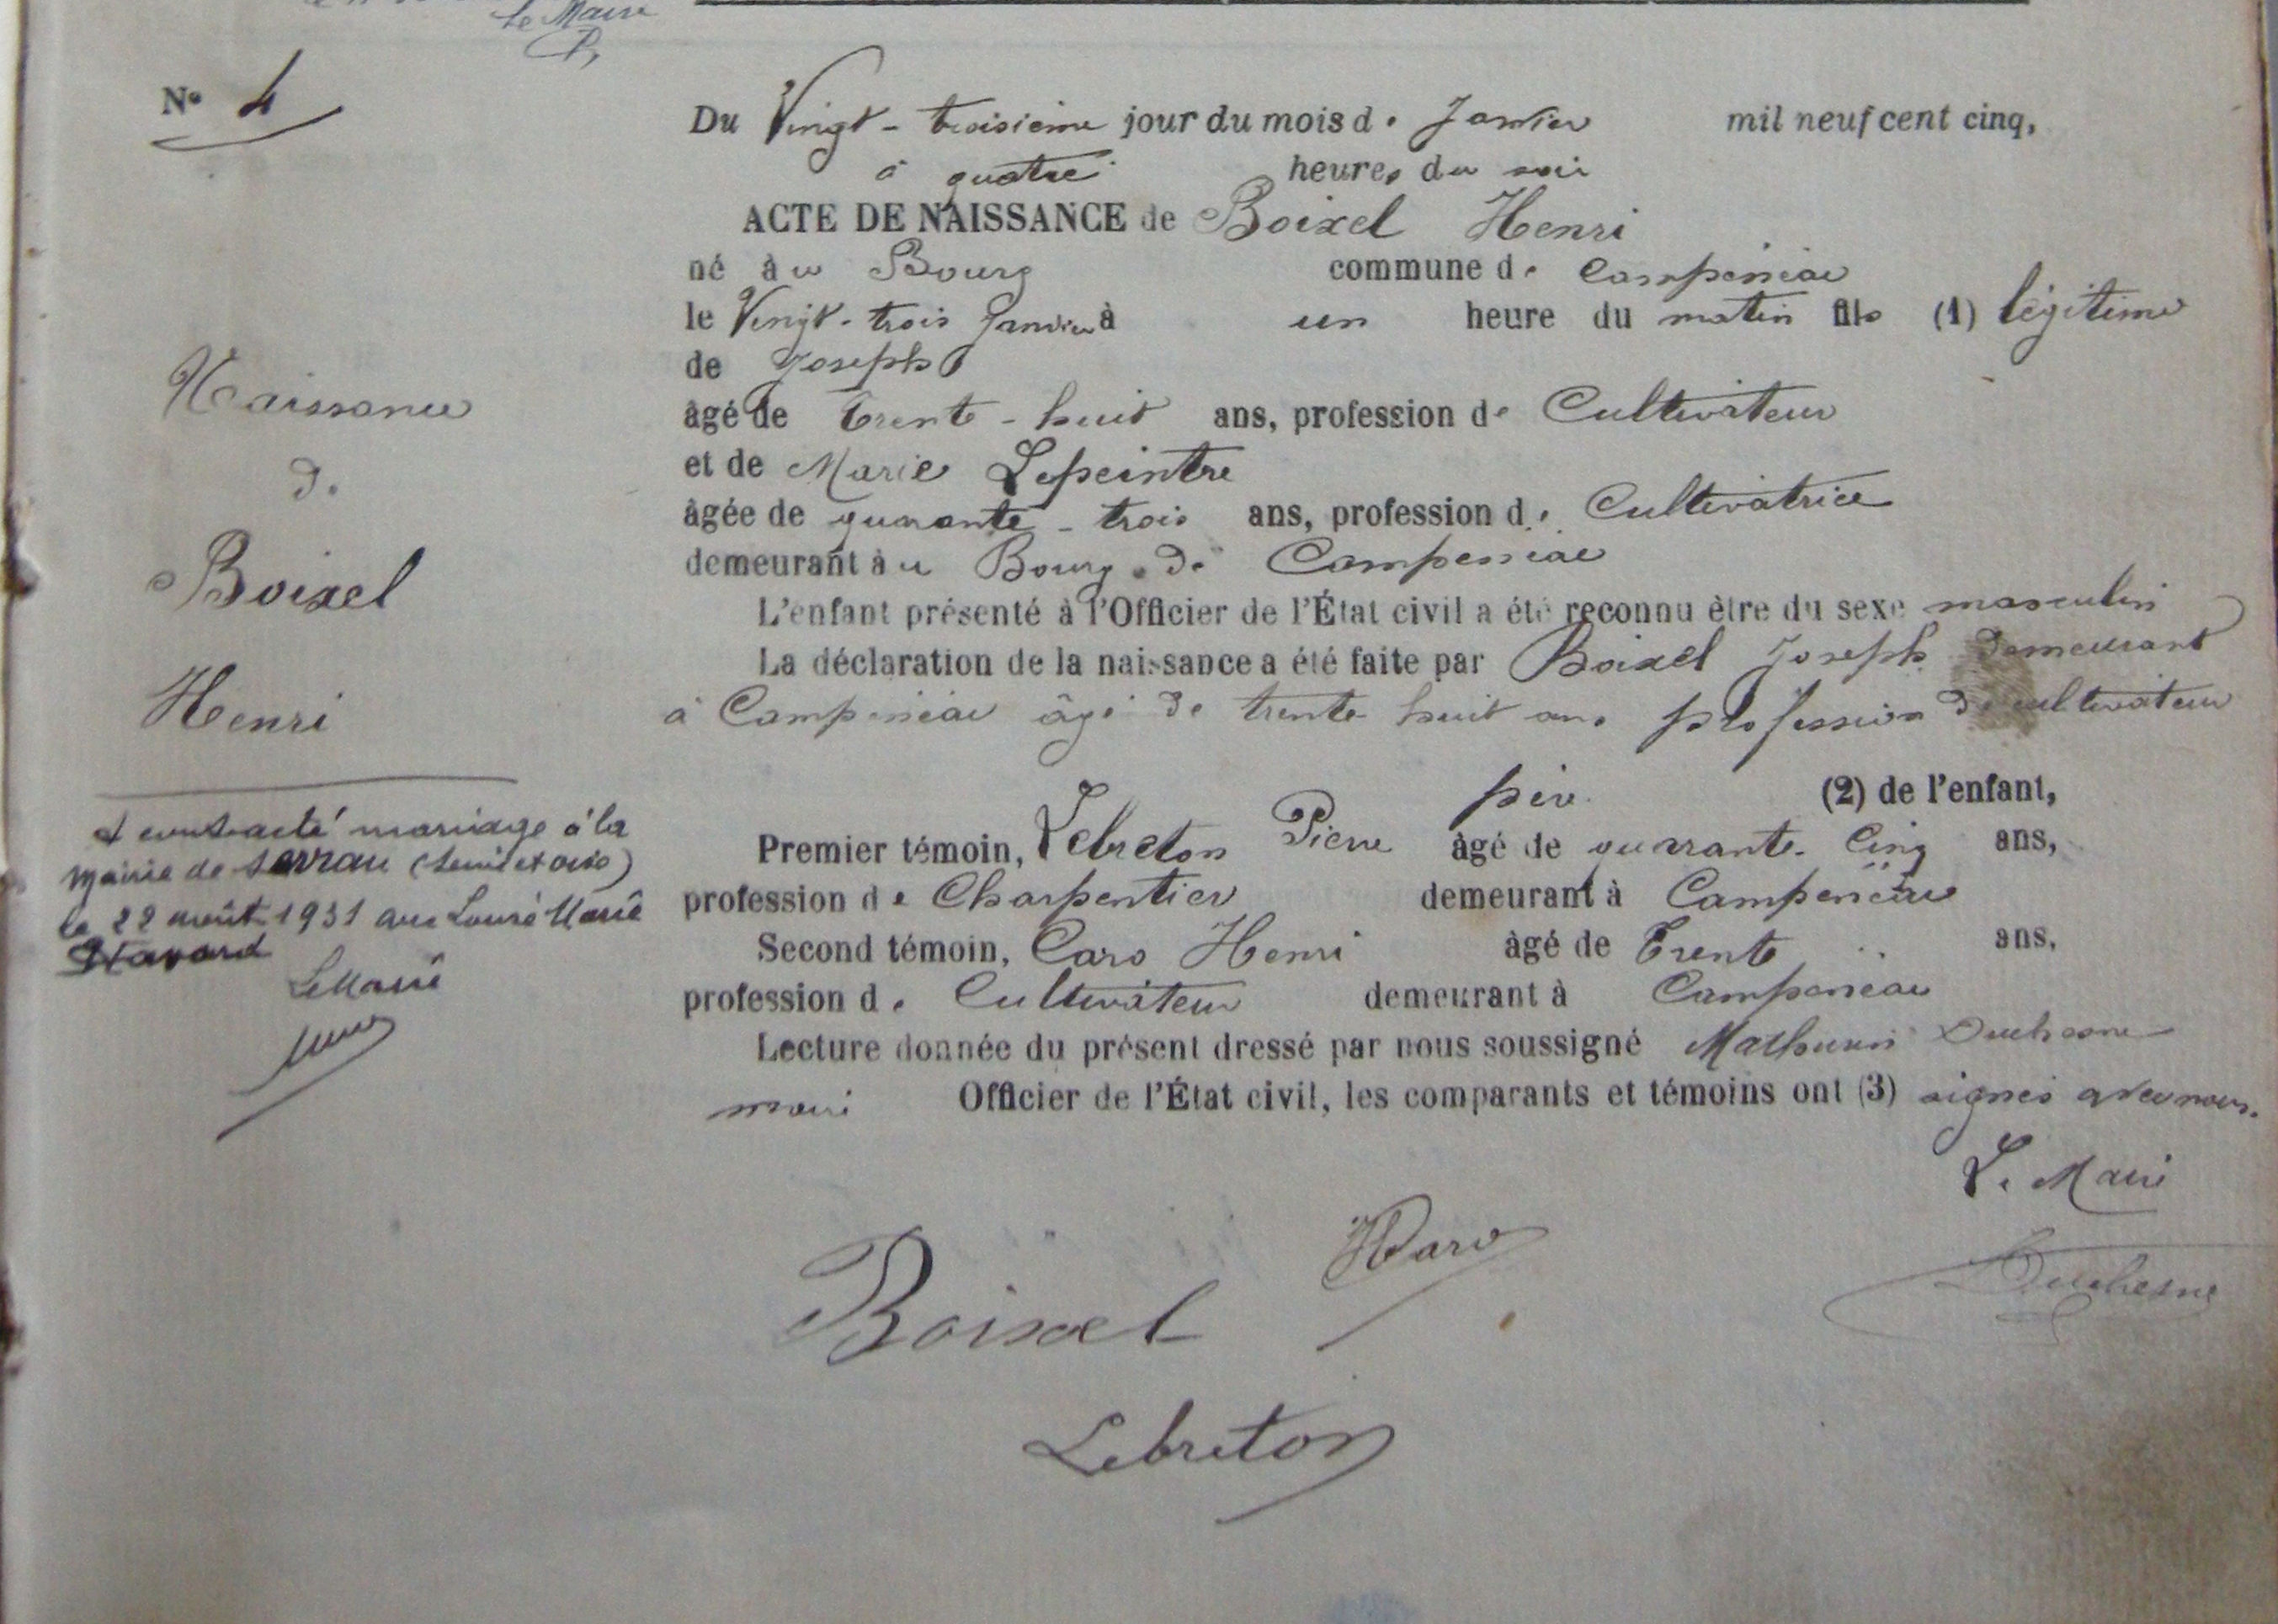 Le Maire
N° 4
Du Vingt-troisième jour du mois de Janvier mil neuf cent cinq,
à quatre heures du soir
ACTE DE NAISSANCE de Boixel Henri
né au Bourg commune de Campénéac
le Vingt-trois Janvier à un heure du matin fils (1) légitime
de Joseph
âgé de Trente-huit ans, profession de Cultivateur
et de Marie Lepeintre
âgée de quarante-trois ans, profession de Cultivatrice
demeurant au Bourg de Campénéac
L'enfant présenté à l'Officier de l'État civil a été reconnu être du sexe masculin
La déclaration de la naissance a été faite par Boixel Joseph demeurant
à Campénéac âgé de trente huit ans profession de cultivateur
père (2) de l'enfant,
Premier témoin, Lebreton Pierre âgé de quarante-Cinq ans,
profession de Charpentier demeurant à Campénéac
Second témoin, Caro Henri âgé de Trente ans,
profession de Cultivateur demeurant à Campénéac
Lecture donnée du présent dressé par nous soussigné Mathurin Duchesne
maire Officier de l'État civil, les comparants et témoins ont (3) signés avec nous.
Le Maire
Naissance
de
Boixel
Henri
A contracté mariage à la
mairie de Sevran (Seine et Oise)
le 22 août 1931 avec Louise Marie
Havard
Le Maire
Boixel
HCaro
Duchesne
Lebreton